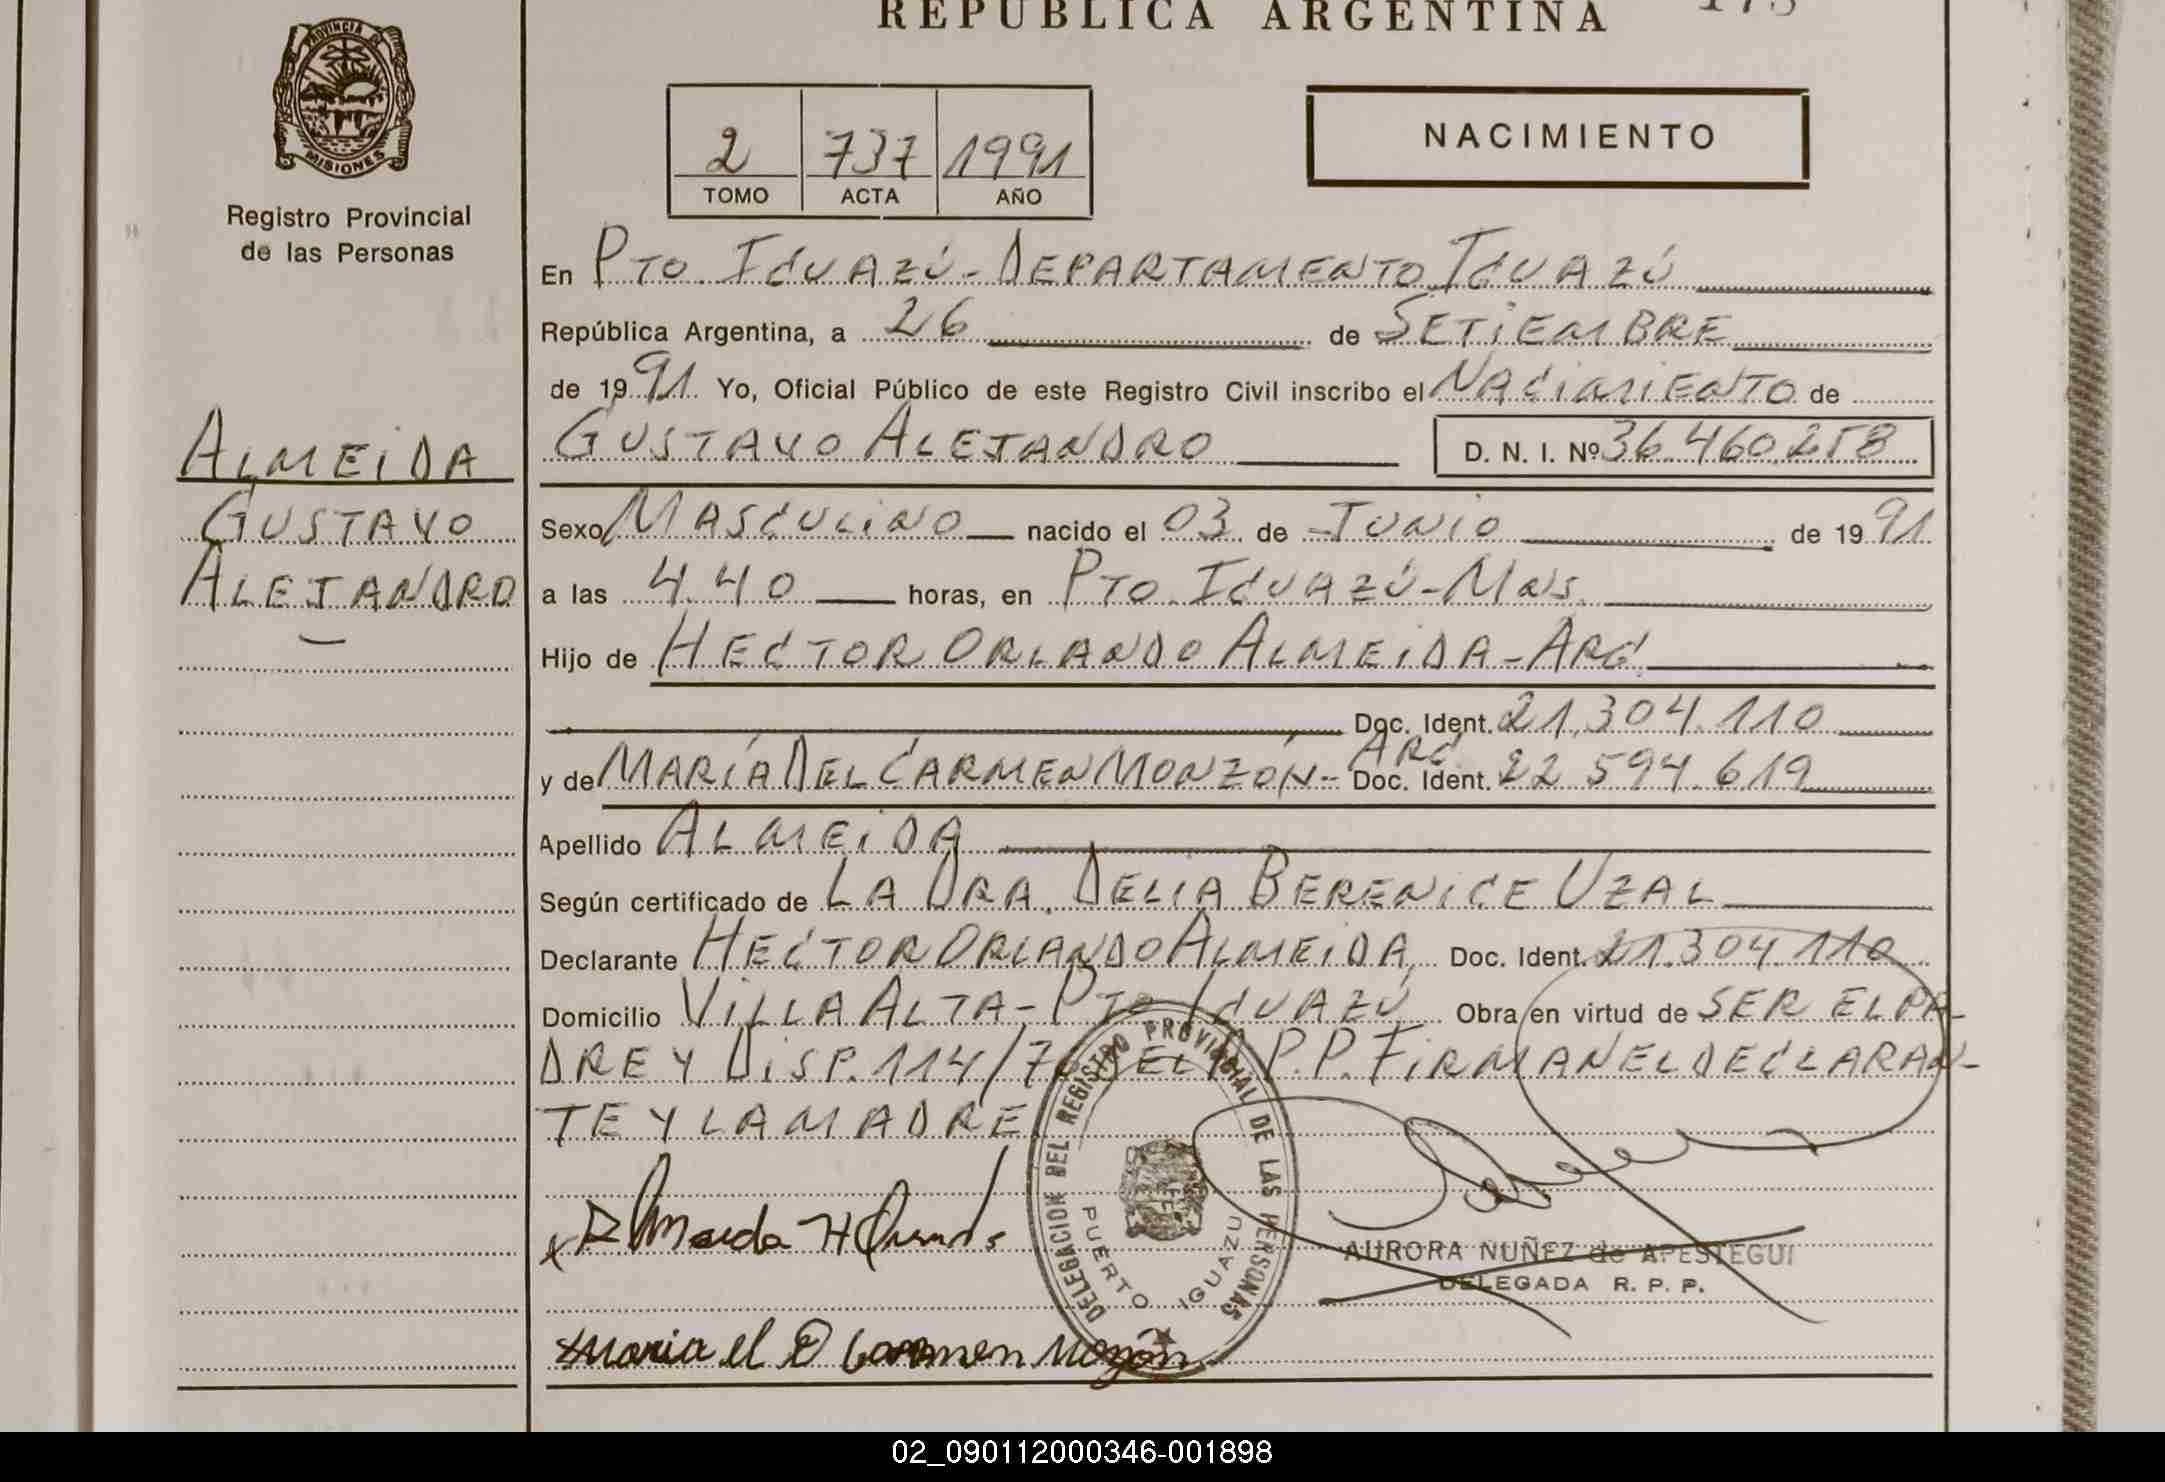 REPUBLICA ARGENTINA
PROVINCIA DE
MISIONES
Registro Provincial
de las Personas
2 737 1991
TOMO ACTA AÑO
NACIMIENTO
En PTO IGUAZÚ - DEPARTAMENTO IGUAZÚ
República Argentina, a 26 de SETIEMBRE
de 1991 Yo, Oficial Público de este Registro Civil inscribo el NACIMIENTO de
GUSTAVO ALEJANDRO D. N. I. Nº 36.460.258
ALMEIDA
GUSTAVO
ALEJANDRO
Sexo MASCULINO nacido el 03 de JUNIO de 1991
a las 4.40 horas, en PTO IGUAZÚ - MNS.
Hijo de HECTOR ORLANDO ALMEIDA - ARG
Doc. Ident. 21.304.110
y de MARÍA DEL CARMEN MONZÓN - ARG Doc. Ident. 22.594.619
Apellido ALMEIDA
Según certificado de LA DRA. DELIA BERENICE UZAL
Declarante HECTOR ORLANDO ALMEIDA, Doc. Ident. 21.304.110
Domicilio VILLA ALTA - PTO IGUAZÚ Obra en virtud de SER EL PA-
DRE Y DISP. 114/ DEL R.P.P. FIRMAN EL DECLARAN-
TE Y LA MADRE
DELEGACION DEL REGISTRO PROVINCIAL DE LAS PERSONAS
PUERTO IGUAZU
AURORA NUÑEZ de APESTEGUI
DELEGADA R. P. P.
Maria el D Carmen Mozón
02_090112000346-001898